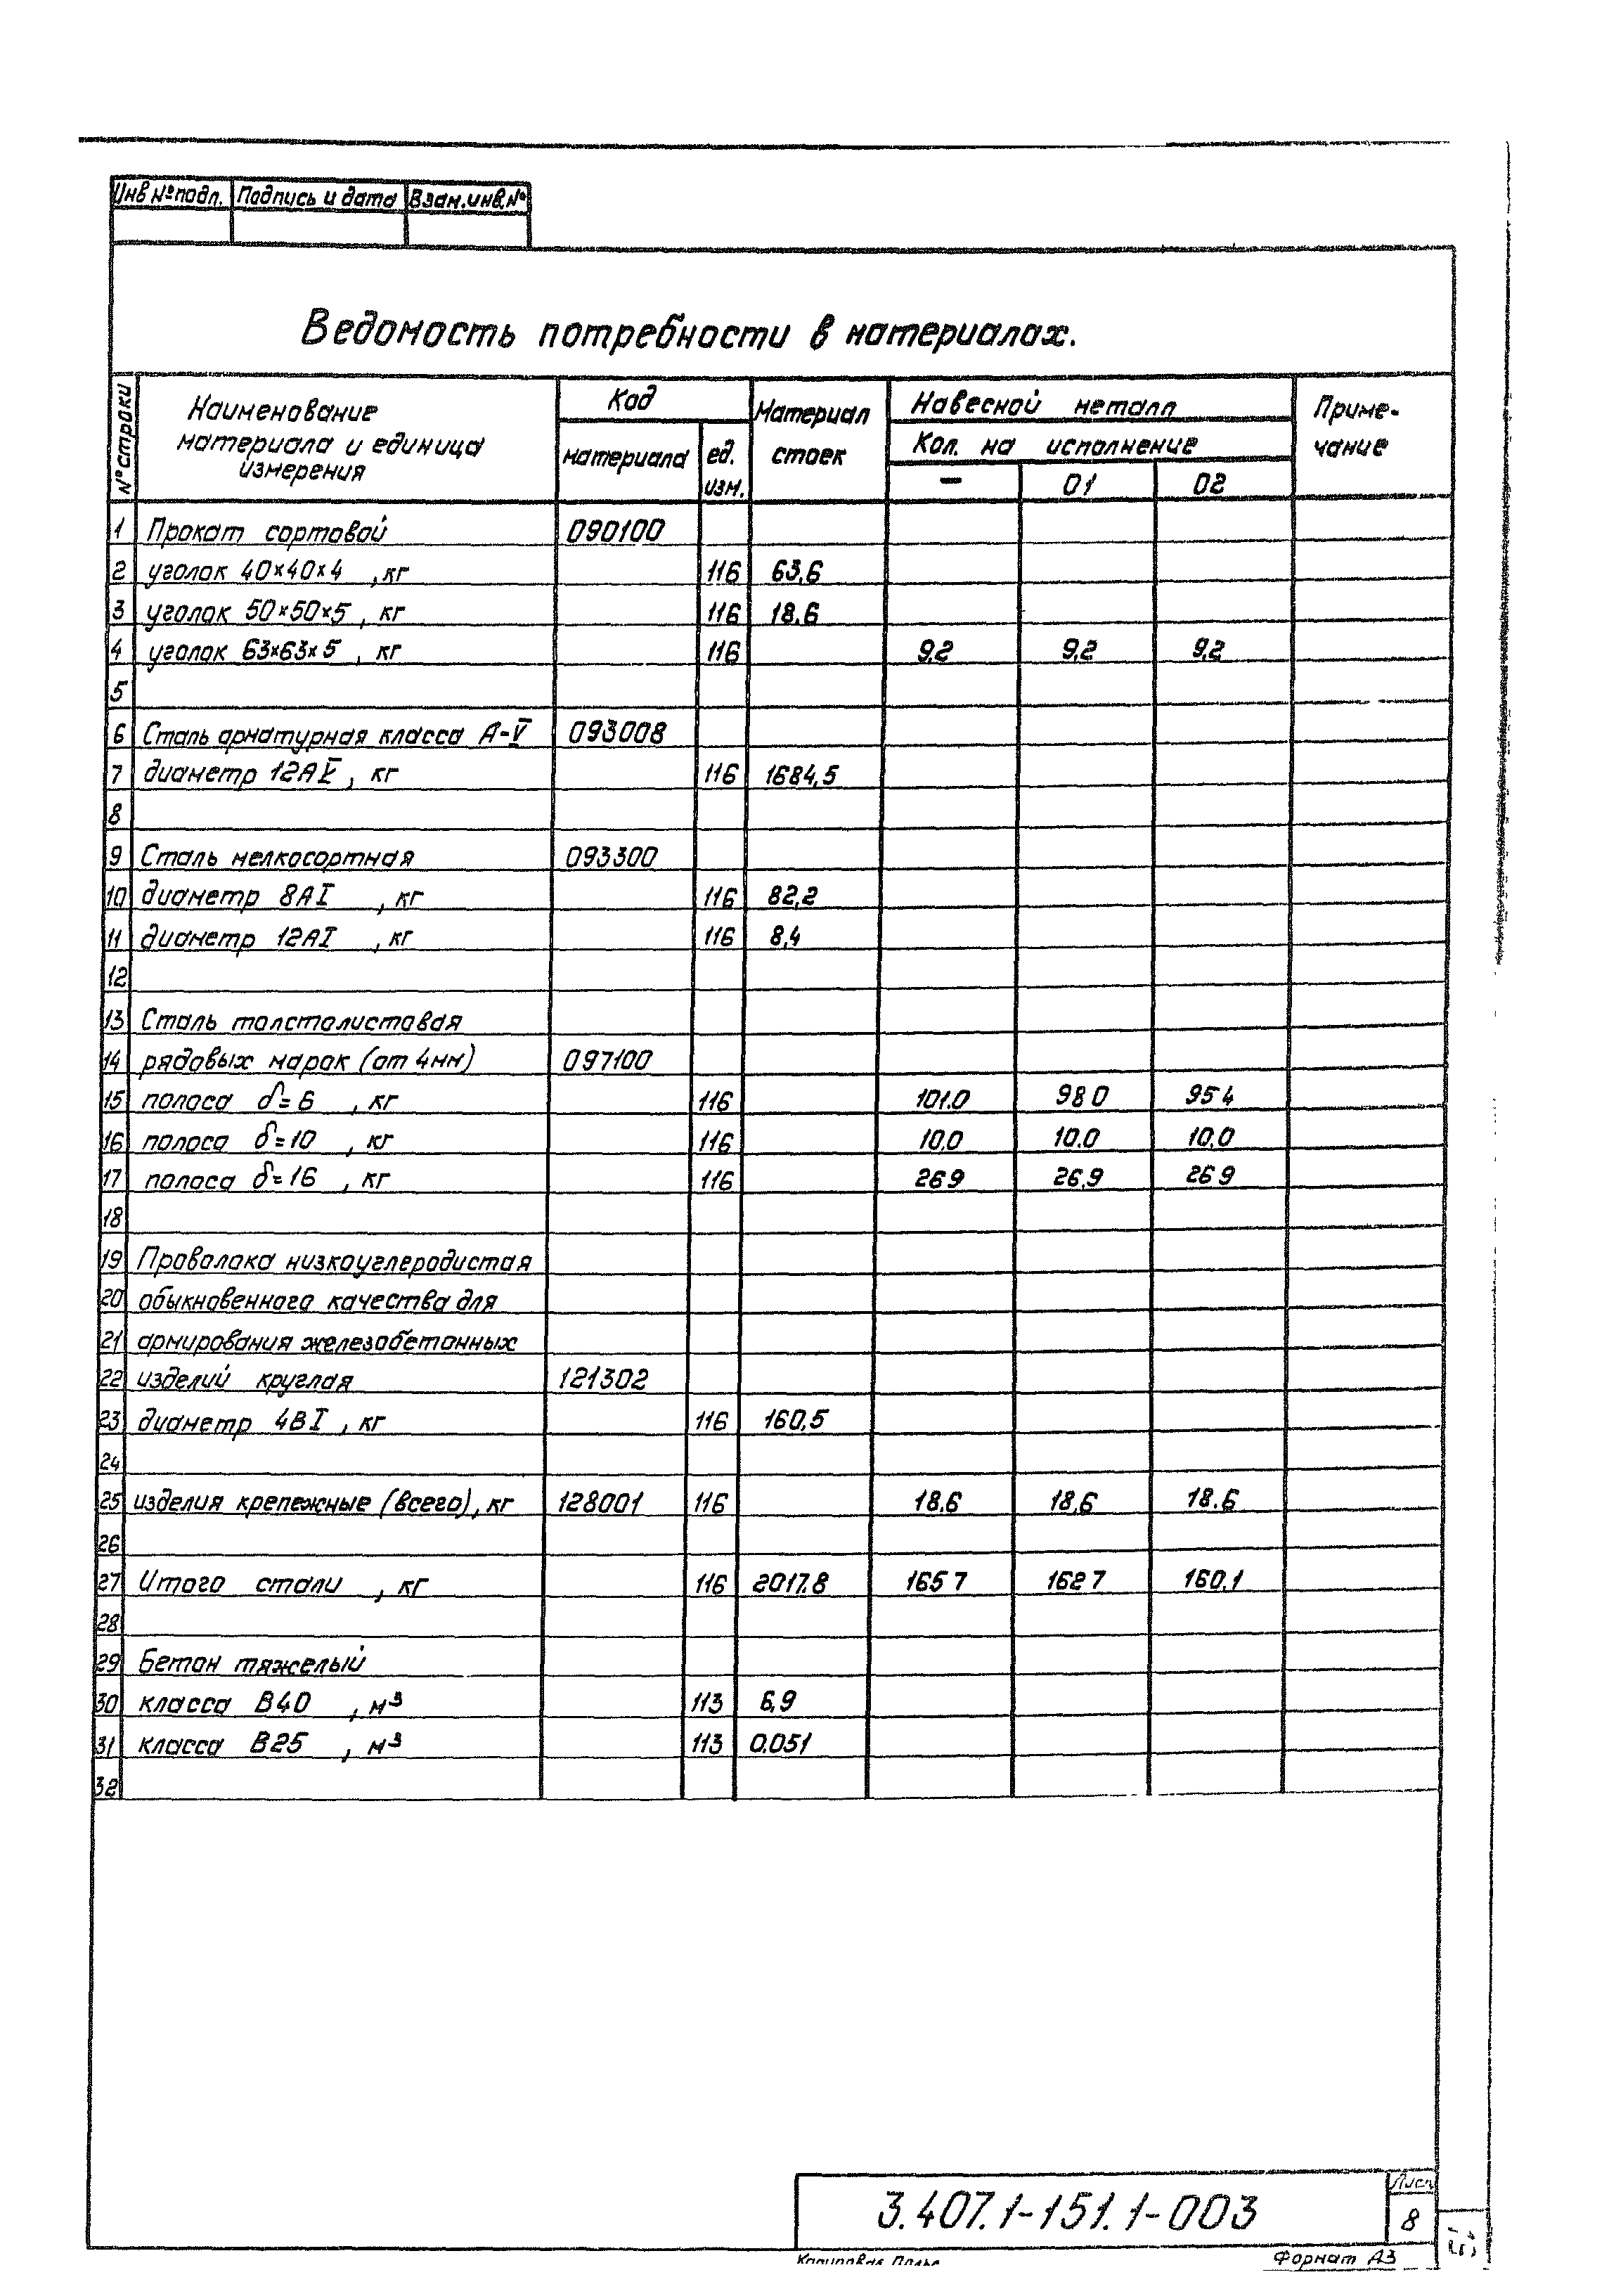 Инв № подл. Подпись и дата Взам.инв.№
Ведомость потребности в материалах.
№ строки
Наименование материала и единица измерения
Код
материала
ед. изм.
Материал стоек
Навесной металл
Кол. на исполнение
— 01 02
Приме-
чание
1 Прокат сортовой 090100
2 уголок 40×40×4 , кг 116 63,6
3 уголок 50×50×5 , кг 116 18.6
4 уголок 63×63×5 , кг 116 9,2 9,2 9,2
5
6 Сталь арматурная класса А-V 093008
7 диаметр 12АV , кг 116 1684,5
8
9 Сталь мелкосортная 093300
10 диаметр 8АI , кг 116 82,2
11 диаметр 12АI , кг 116 8,4
12
13 Сталь толстолистовая
14 рядовых марок (от 4мм) 097100
15 полоса δ=6 , кг 116 101.0 98 0 95 4
16 полоса δ=10 , кг 116 10,0 10.0 10,0
17 полоса δ=16 , кг 116 26 9 26,9 26 9
18
19 Проволока низкоуглеродистая
20 обыкновенного качества для
21 армирования железобетонных
22 изделий круглая 121302
23 диаметр 4ВI , кг 116 160,5
24
25 изделия крепежные (всего), кг 128001 116 18,6 18,6 18.6
26
27 Итого стали , кг 116 2017.8 165 7 162 7 160,1
28
29 Бетон тяжелый
30 класса В40 , м³ 113 6,9
31 класса В25 , м³ 113 0.051
32
3.407.1-151.1-003
Лист
8
Формат А3